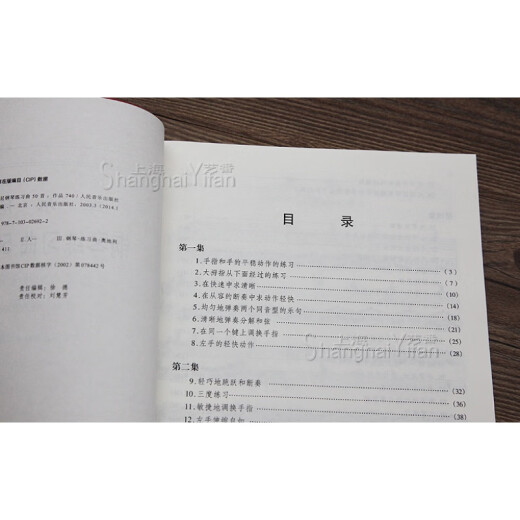 在版编目(CIP)数据
钢琴练习曲50首:作品740/人民音乐出版社
编.—北京:人民音乐出版社,2003.3(2014.)
978-7-103-02692-2
版图书馆CIP数据核字(2002)第078442号
责任编辑:徐德
责任校对:刘慧芳
上海艺番
Shanghai Yifan
目 录
第一集
1.手指和手的平稳动作的练习 (5)
2.大拇指从下面经过的练习 (7)
3.在快速中求清晰 (10)
4.在从容的断奏中求动作轻快 (14)
5.均匀地弹奏两个同音型的乐句 (18)
6.清晰地弹奏分解和弦 (21)
7.在同一个键上调换手指 (25)
8.左手的轻快动作 (28)
上海艺番
Shanghai Yifan
第二集
9.轻巧地跳跃和断奏 (32)
10.三度练习 (36)
11.敏捷地调换手指 (38)